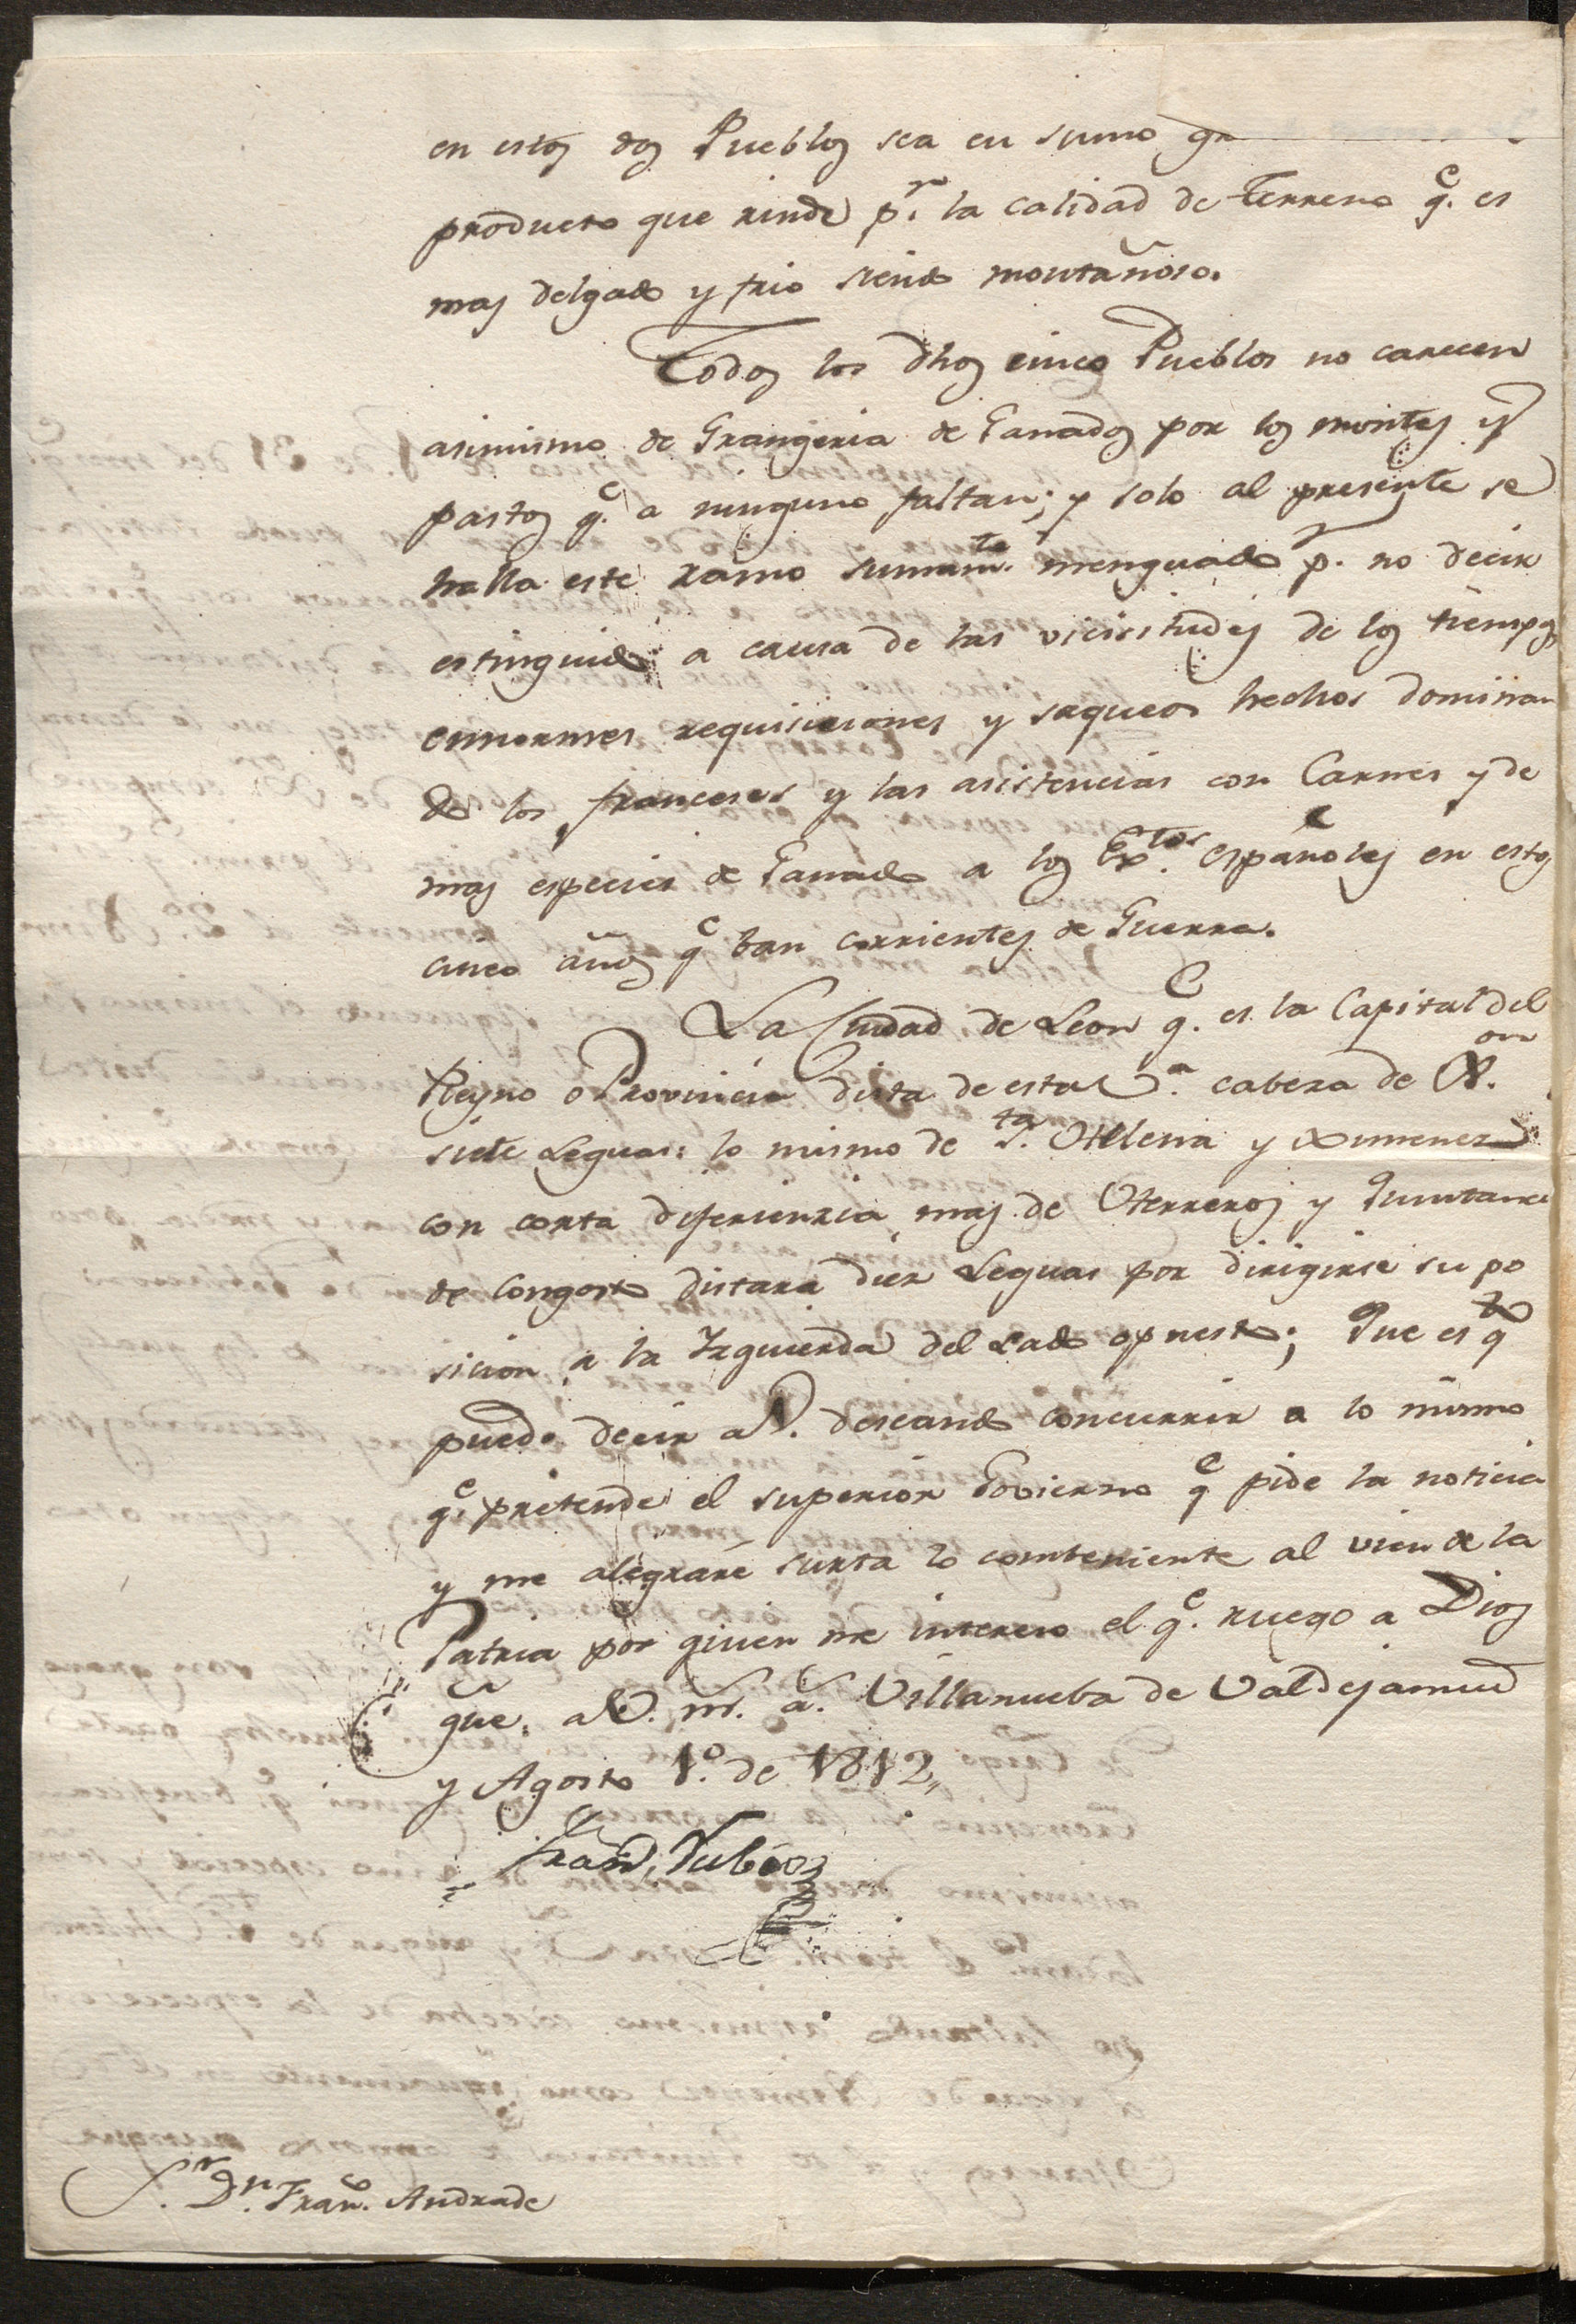 en estos dos Pueblos sea en sumo
producto que rinde p.r la calidad de terreno q.e es
mas delgado y frio siendo montañoso.
Todos los dhos cinco Pueblos no carecen
asimismo de Grangeria de Ganados por los montes y
pastos q.e a ninguno faltan; y solo al presente se
halla este ramo sumam.te menguado p.r no decir
estinguido a causa de las vicisitudes de los tiempos
ennormes requisiciones y saqueos hechos dominan
do los franceses y las asistencias con Carnes y de
mas especies de Ganado a los Ex.tos españoles en estos
cinco años q.e ban corrientes de Guerra.
La Ciudad de Leon q.e es la Capital del
Reyno o Provincia dista de esta V.a cabeza de
siete Leguas: lo mismo de S.ta Olena y Ximenez
con corta diferienzia, mas de Oterreros y Quintana
de Congosto distara diez Leguas por dirigirse su po
sicion a la Izquierda del Lado opuesto; Que es q.to
puedo decir a V. deseando concurrir a lo mismo
q.e pretende el superior Govierno q.e pide la noticia
y me alegraré surta lo combeniente al vien de la
Patria por quien me intereso el q.e ruego a Dios
gue. a V. m.s a.s Villanueba de Valdejamud
y Agosto 1.º de 1812,,
S.r D.n Fran.co Andrade